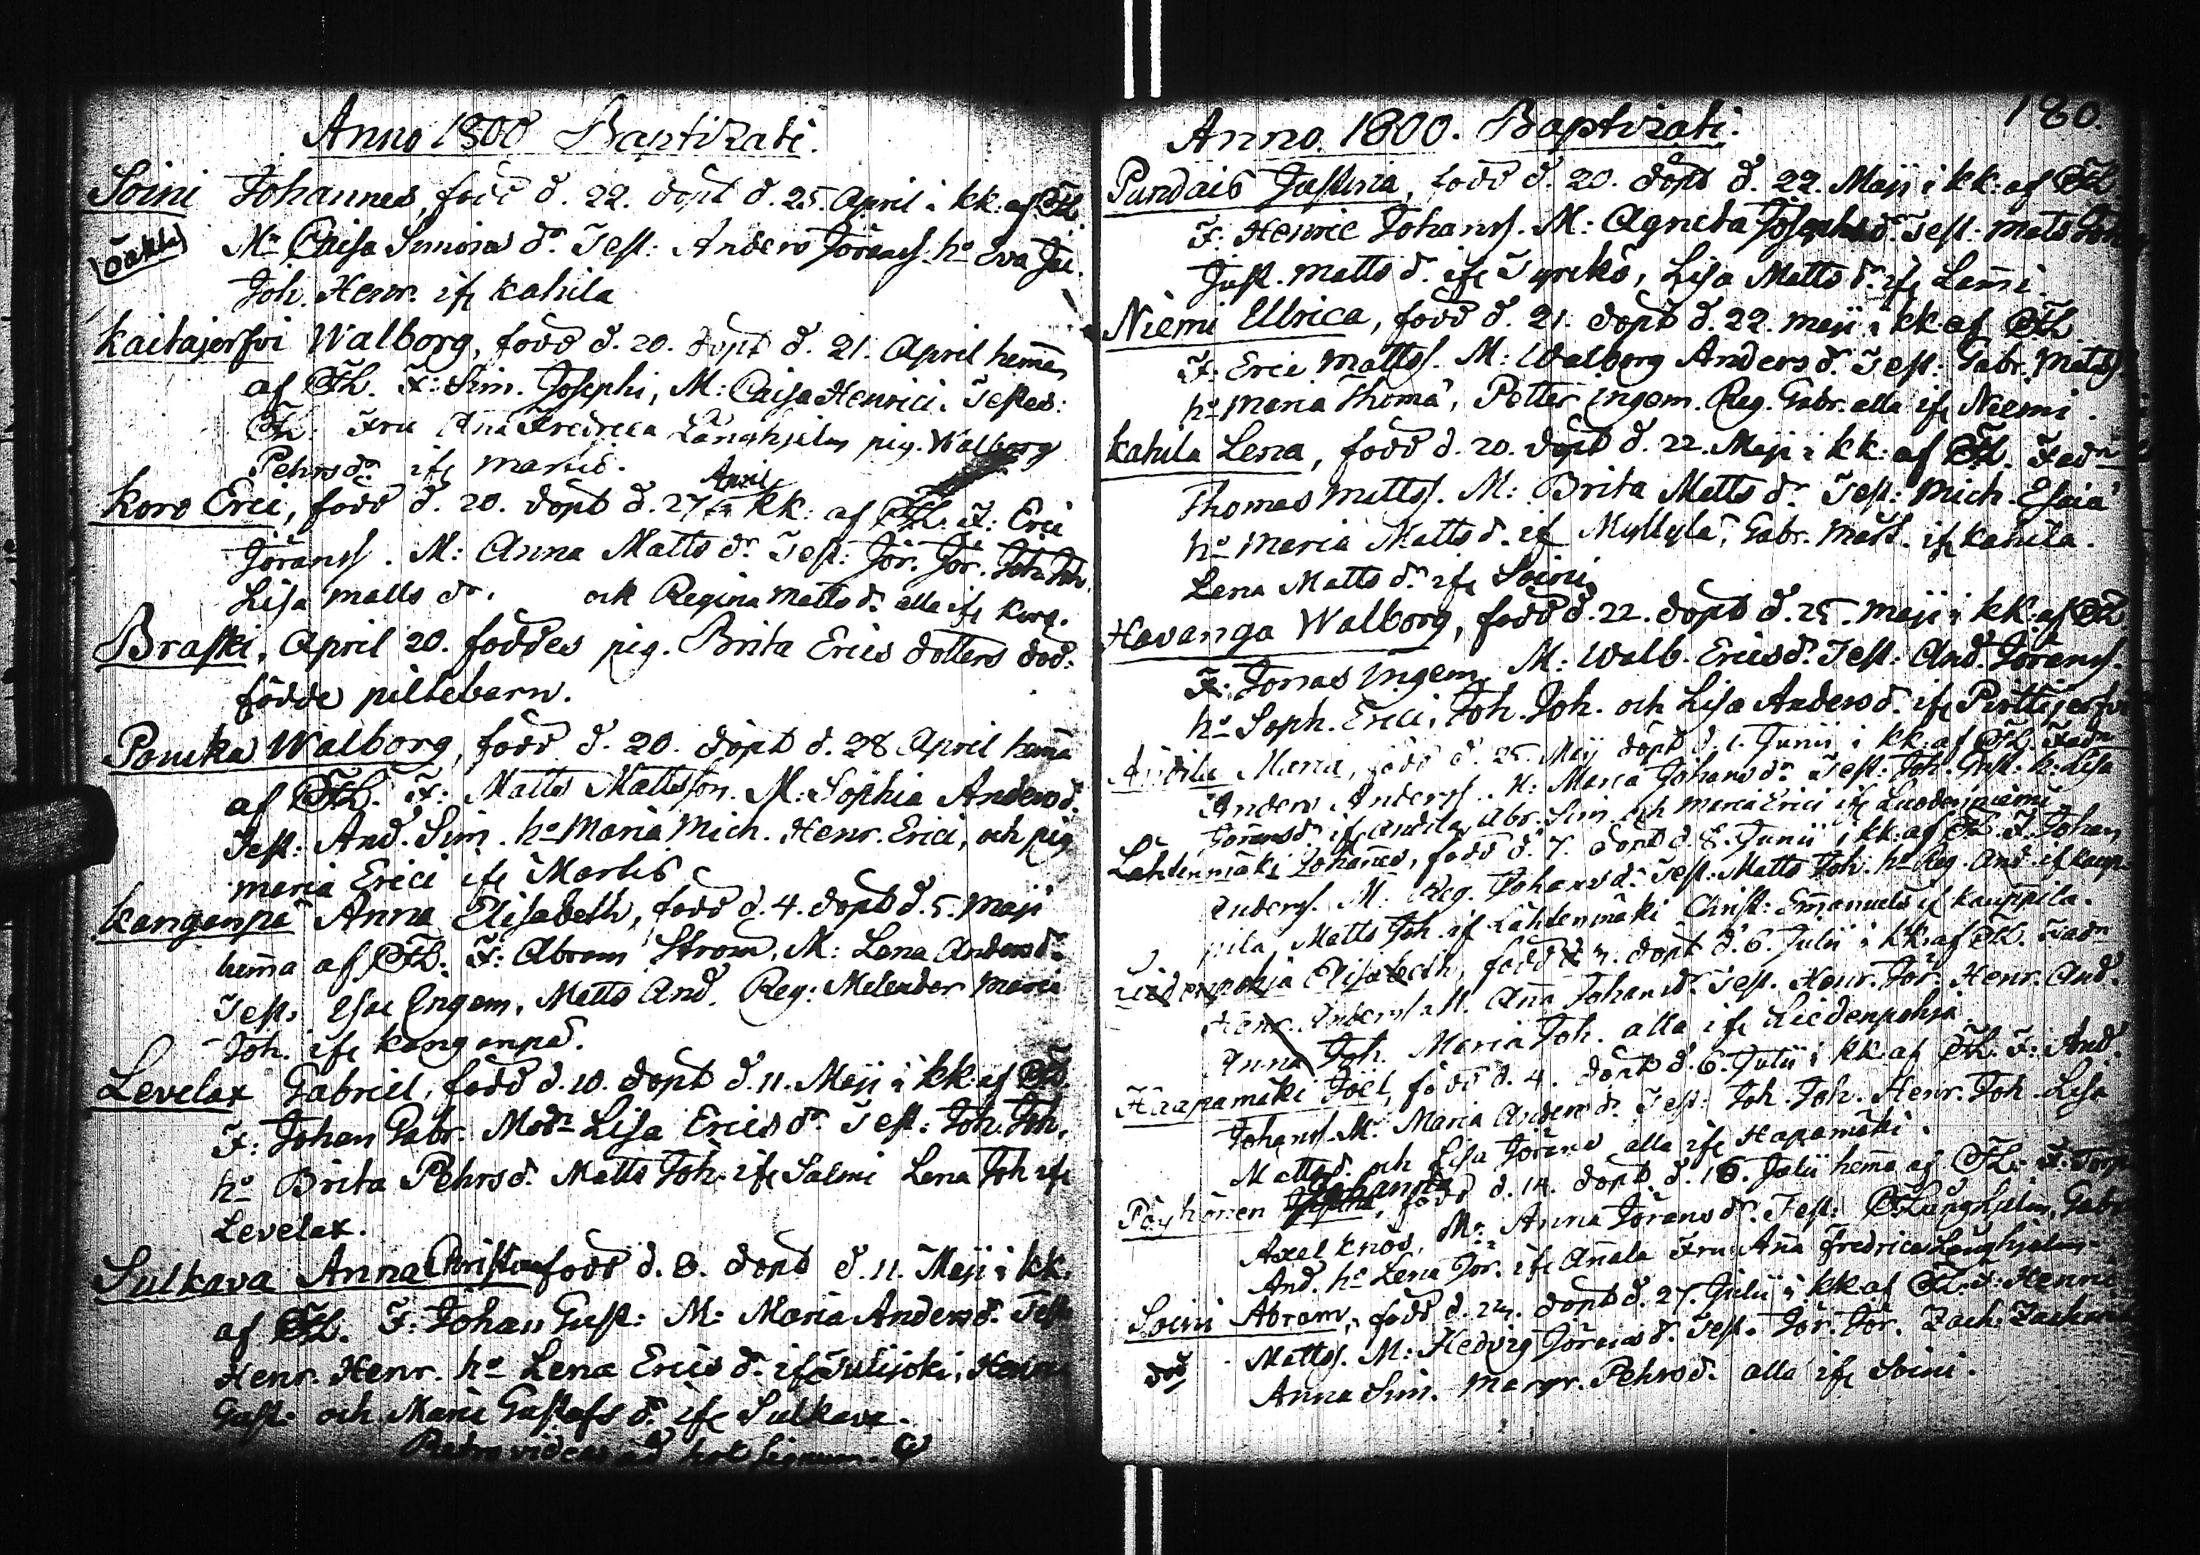 Anno 1800 Baptizati.
Soini Johannes, född d. 22. döpt d. 25. April i kk: af FL.
oäkta M: Caisa Simons dr Test: Anders Jöranss. ho Eva Jac.
Joh. Henr. ifr Kahila
Kaitajerfvi Walborg, född d. 20. döpt d. 21. April hemma
af FL. F: Sim. Josephi, M: Caisa Henrici. Testes:
FL. Fru Anna Fredrica Långhjelm pig. Walborg
Pehrs dr ifr
Koro Erici, född d. 20. döpt d. 27 April i kk: af FL. F: Eric
Jöranss. M: Anna Matts dr Test: Jör. Jör. Joh. Joh.
Lisa Matts dr. och Regina Matts dr alla ifr Koro.
Braski, April 20. föddes pig. Brita Erics dotters död-
födde piltebarn.
Pouka Walborg, född d. 20. döpt d. 28 April hemma
af FL. F: Matts Mattsson. M: Sophia Anders d.
Test: And. Sim. ho Maria Mich. Henr. Erici, och pig
Maria Erici ifr
Kangenpä Anna Elisabeth, född d. 4. döpt d. 5. Maji
hemma af FL. F: Abram Ström, M: Lena Anders dr
Test: Esai Engem, Matts And. Reg: Melender Maria
Joh. ifr Kangenpä.
Levelax Gabriel, född d. 10. döpt d. 11. Maji i kk: af FL
F: Johan Gabr. Modr Lisa Erics dr Test: Joh. Joh.
ho Brita Pehrs d. Matts Joh. ifr Salmi Lena Joh ifr
Levelax.
Sulkava Anna Christina född d. 8. döpt d. 11. Maji i kk.
af FL. F: Johan Gust: M: Maria Anders d. Test
Henr. Henr. ho Lena Erics dr ifr Henr
Gust. och Maria Gustafs d. ifr Sulkava.
Retro vide ad hoc signum.
180.
Anno. 1800. Baptizati.
Pundais Justina, född d. 20. döpt d. 22. Maji i kk: af FL
F: Henric Johanss. M: Agneta Josephs d. Test: Mats
Just. Matts d. ifr Lisa Matts d. ifr
Niemi Ullrica, född d. 21. döpt d. 22. Maji i kk: af FL
F: Eric Mattss. M: Walborg Anders d. Test: Gabr. Matss.
ho Maria Thomæ, Petter Ingem. Reg. Gabr. alla ifr Niemi.
Kahila Lena, född d. 20. döpt d. 22. Maji i kk: af FL. Fadr
Thomas Mattss. M: Brita Matts dr Test: Mich. Esaiæ
ho Maria Matts d. ifr Myllylä, Gabr. Matt. ifr Kahila.
Lena Matts dr ifr Soini
Havanga Walborg, född d. 22. döpt d. 25. Maji i kk: af FL
F: Jonas Ingem. M: Walb. Erics d. Test: And. Jöranss.
ho Soph. Erici, Joh. Joh. och Lisa Anders d. ifr
Andila Maria, född d. 25. Maij döpt d. 1. Junii i kk: af FL. Fadr
Anders Anderss. M: Maria Johans dr Test: Joh. Gust. h: Lisa
Jörans d. ifr Andila Abr. Sim. och Maria Erici ifr Luodenniemi
Lähdenmäki Johannes, född d. 7. döpt d. 8. Junii i kk: af FL. F: Johan
Anderss. M: Reg. Johans d. Test: Matts Joh. ho Reg. And. ifr Kaup-
pila, Matts Joh. ifr Lähdenmäki Christ: Emanuels ifr Kauppila.
Elisabeth, född döpt d. 6. Julii i kk: af FL. Fadr
Henr. Anderss. M. Anna Johans d. Test. Henr. Jör. Henr. And.
Anna Joh. Maria Joh. alla ifr Liedenpohja.
Haapamäki Joel, född d. 4. döpt d. 6. Julii i kk: af FL. F: And.
Johanss. M: Maria Anders d. Test: Joh. Joh. Henr. Joh. Lisa
Matts d. och Lisa Jörans alla ifr Hapamäki.
Pöyhönen Johanna, född d. 14. döpt d. 16. Julii hemma af FL. F: Torp
Axel Knös, M: Anna Jörans d. Test: FLånghjelm, Gabr
And. ho Lena Jör. ifr Annala Fru Anna Fredrica Långhjelm
Soini Abram, född d. 24. döpt d. 27. Julii i kk: af FL. F: Henric
död Mattss. M: Hedvig Jörans d. Test. Jör. Jör. Zach. Zachariæ
Anna Sim. Margr. Pehrs d. alla ifr Soini.